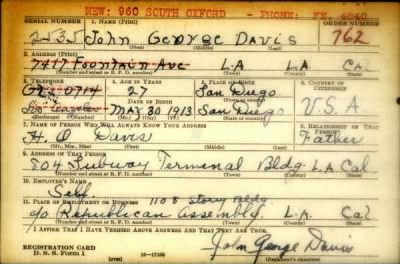 NEW: 960 SOUTH OXFORD - PHONE: FE. 4040
SERIAL NUMBER 1. NAME (Print) ORDER NUMBER
2535 John George Davis 762
(First) (Middle) (Last)
2. ADDRESS (Print)
7417 Fountain Ave L.A L.A Cal
(Number and street or R. F. D. number) (Town) (County) (State)
3. TELEPHONE 4. AGE IN YEARS 5. PLACE OF BIRTH 6. COUNTRY OF CITIZENSHIP
0714 27 San Diego
DATE OF BIRTH
May 30 1913 San Diego U.S.A
(Exchange) (Number) (Mo.) (Day) (Yr.) (State or country)
7. NAME OF PERSON WHO WILL ALWAYS KNOW YOUR ADDRESS 8. RELATIONSHIP OF THAT PERSON
H. O Davis Father
(Mr., Mrs., Miss) (First) (Middle) (Last)
9. ADDRESS OF THAT PERSON
804 Subway Terminal Bldg. L.A Cal
(Number and street or R. F. D. number) (Town) (County) (State)
10. EMPLOYER'S NAME
Self
11. PLACE OF EMPLOYMENT OR BUSINESS 1108 Story Bldg
c/o Republican Assembly L.A. Cal
(Number and street or R. F. D. number) (Town) (County) (State)
I AFFIRM THAT I HAVE VERIFIED ABOVE ANSWERS AND THAT THEY ARE TRUE.
REGISTRATION CARD
D. S. S. Form 1 16-17105 John George Davis
(over) (Registrant's signature)